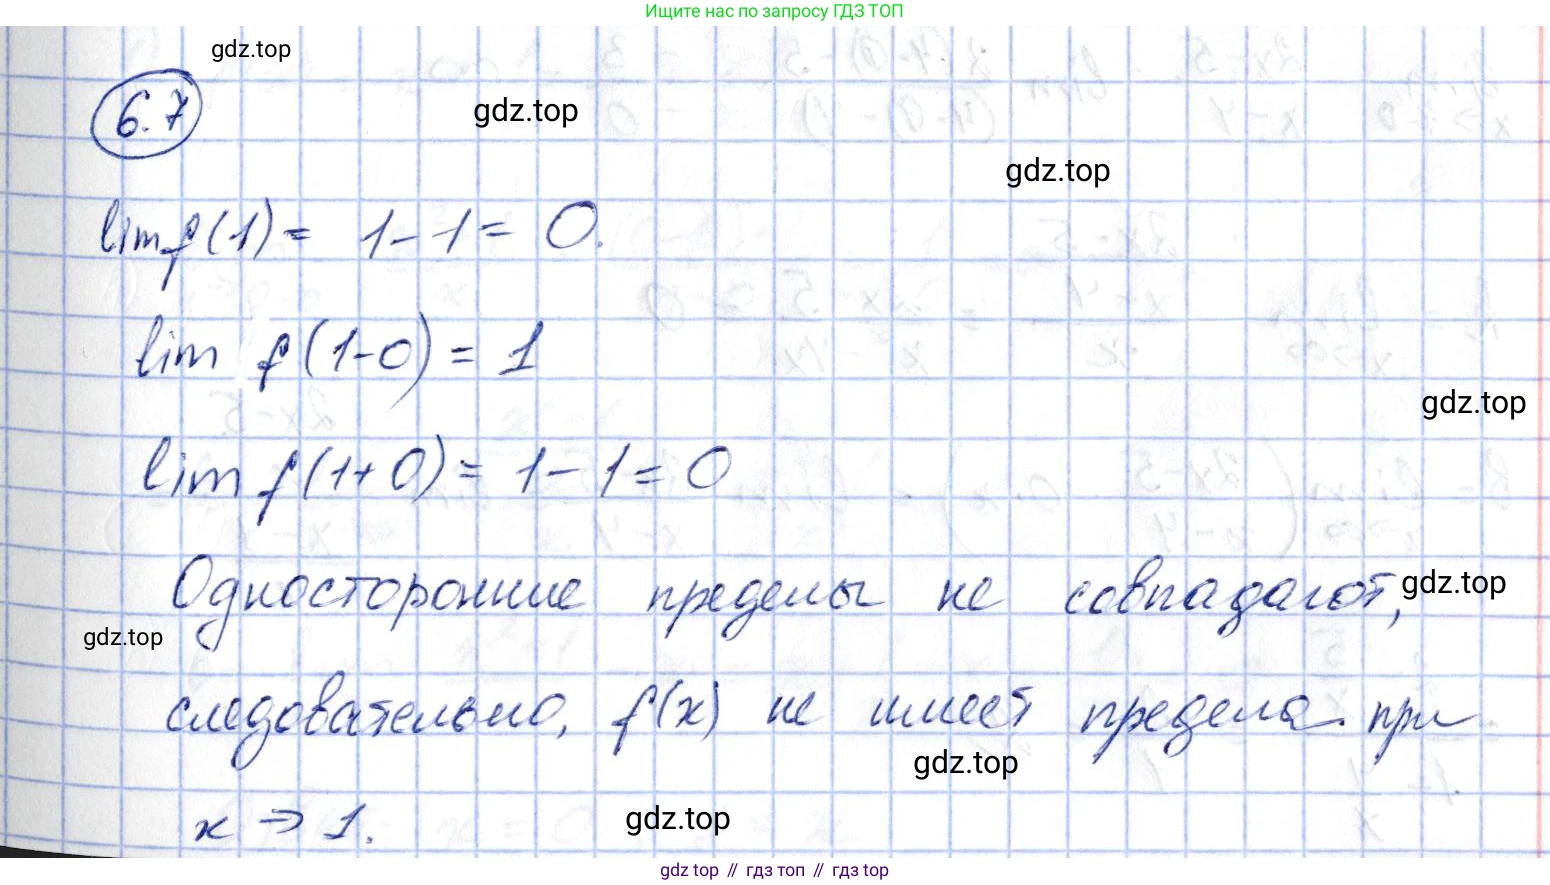 Ищите нас по запросу ГДЗ ТОП
gdz.top
6.7
gdz.top
gdz.top
lim f(1) = 1-1 = 0.
lim f(1-0) = 1
gdz.top
lim f(1+0) = 1-1 = 0
Односторонние пределы не совпадают,
gdz.top
gdz.top
следовательно, f(x) не имеет предела при
gdz.top
x → 1.
gdz.top
gdz.top // гдз топ // гдз top